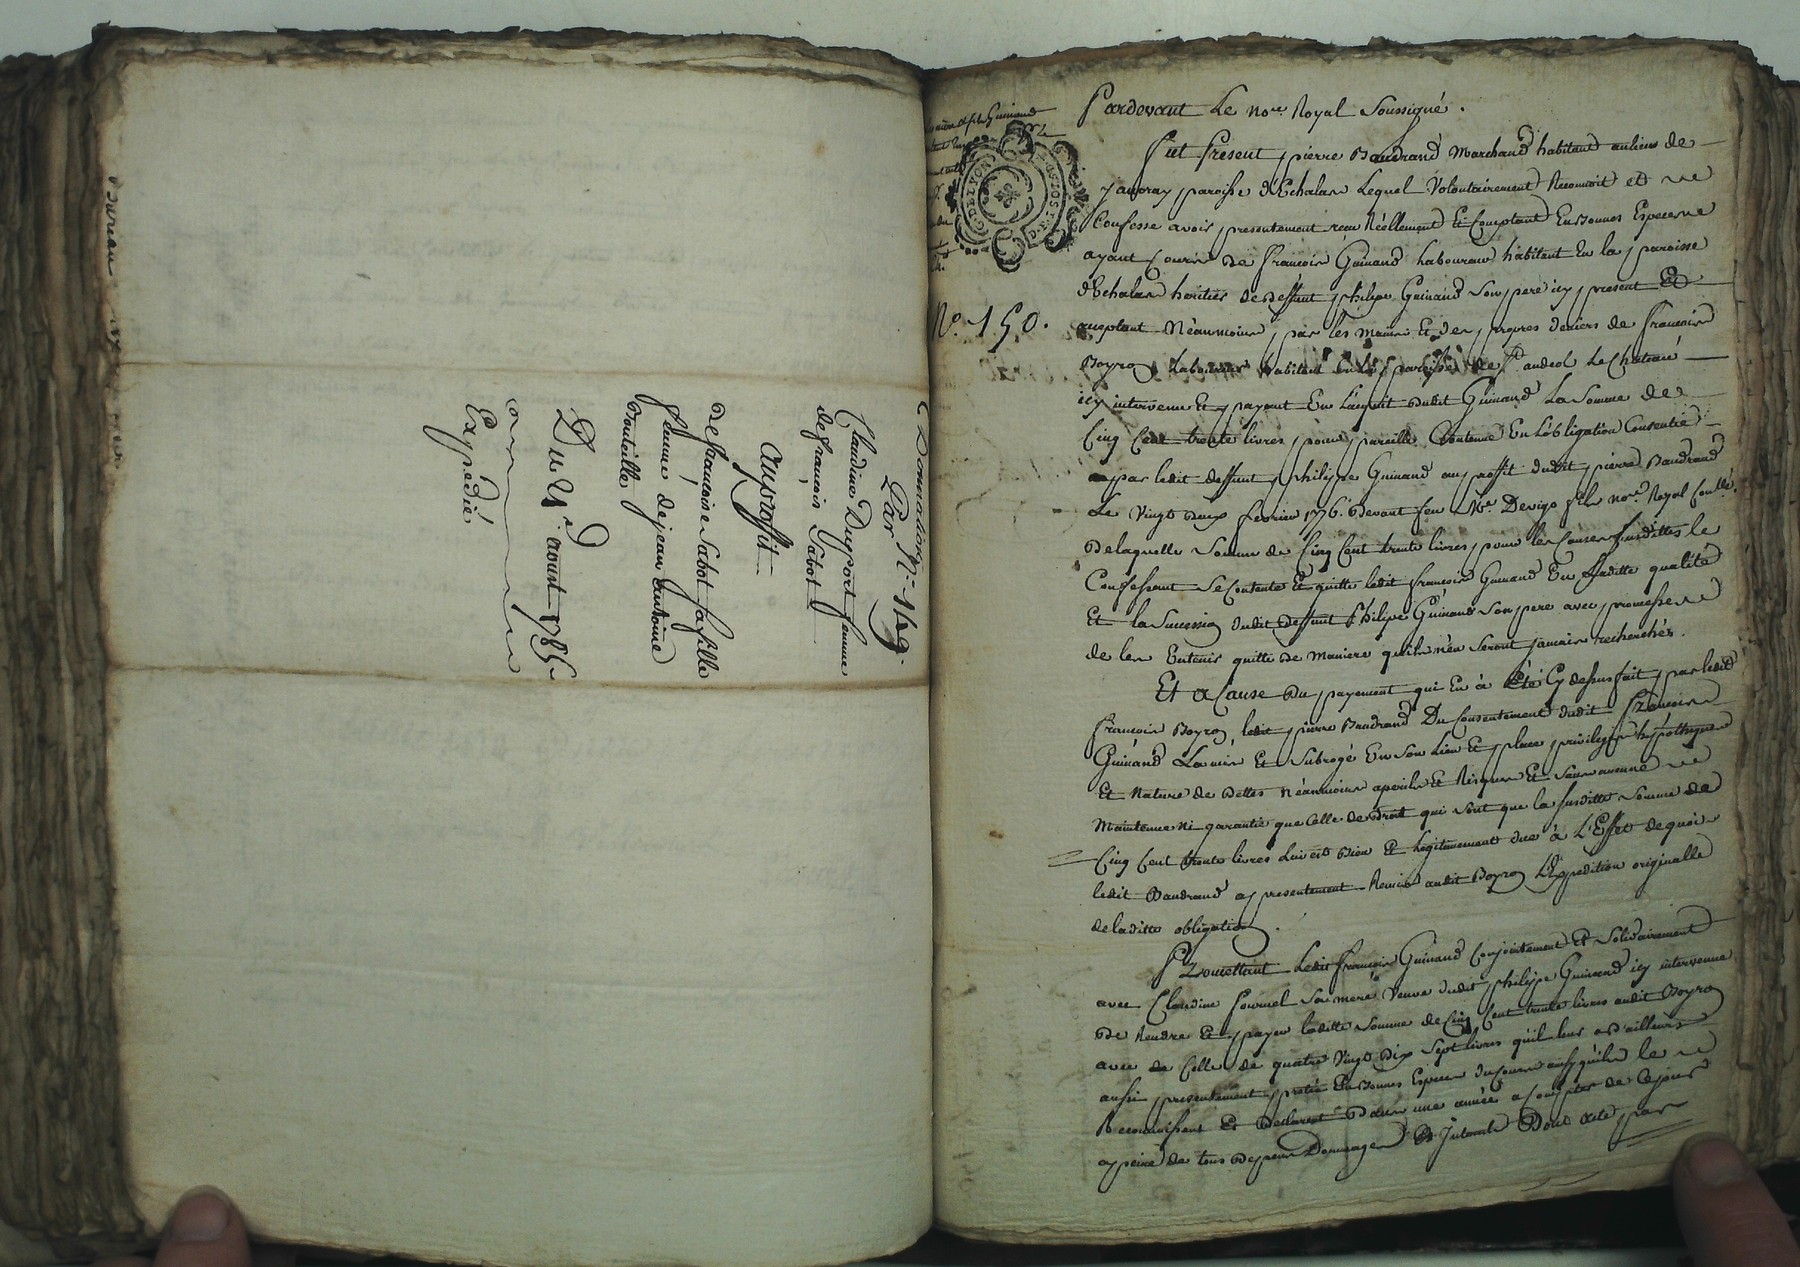 Bureau
Donnation
Par N.° 149.
Claudine Duport femme
de francois Sabot
au proffit
de francoise Sabot sa fille
femme de jean antoine
Bouteille
Du 4.e aoust 1785
Expédié
N.° 150.
Pardevant Le no.re Royal Soussigné.
fut Present pierre Baudrand Marchand habitant au lieu de
paroisse d'Echalas Lequel Volontairement Reconnoit et
Confesse avoir presentement recu Réellement Et Comptant En Bonnes Especes
ayant Cours de francois Guinand Laboureur habitant En la paroisse
d'Echalas heritier de deffunt philipe Guinand Son pere icy present Et
aceptant Néanmoins par les mains Et des propres deniers de francois
Boyron Laboureur habitant en la paroisse de St. andeol Le Chateau
icy intervenu Et payant En L'acquit dudit Guinand La Somme de
Cinq Cent trente livres pour pareille Contenue En L'obligation Consentie
par ledit deffunt philipe Guinand au proffit dudit pierre Baudrand
Le Vingt Deux fevrier 1776. Devant feu Me. Devigo fils no.re Royal
De laquelle Somme de Cinq Cent trente livres pour les Causes susdittes le
Confessant Se Contente Et quitte ledit francois Guinand En saditte qualité
Et la Succession dudit deffunt Philipe Guinand Son pere avec promesse
de les Entenir quitte De Maniere quils n'en Seront jamais recherchés.
Et a Cause Du payement qui En à Eté Cy dessus fait par ledit
francois Boyron ledit pierre Baudrand Du Consentement dudit francois
Guinand La mis Et Subrogé En Son Lieu Et place privileges hypotheques
Et Nature de Dettes Néanmoins a perils Et Risques Et Sans aucune
Maintenue Ni garantie que Celle de droit qui Sont que la susditte Somme de
Cinq Cent trente livres Lui est Bien Et Légitimement due à L'Effet de quoi
ledit Baudrand a presentement Remis audit Boyron L'Expedition originalle
de laditte obligation.
Promettant Ledit francois Guinand Conjointement Et Solidairement
avec Claudine fournel Sa mere Veuve dudit philippe Guinand icy intervenue
De Rendre Et payer laditte Somme de Cinq Cent trente livres audit Boyron
avec de Celle de quatre Vingt Dix Sept livres qu'il leur a D'ailleurs
aussi presentement pretée En Bonnes Especes du Cours ainsy quils le
Reconnoissent Et Declarent Dans une année a Compter de Ce jour
a peine de tous Depens Dommages Et Interets Dont acte par